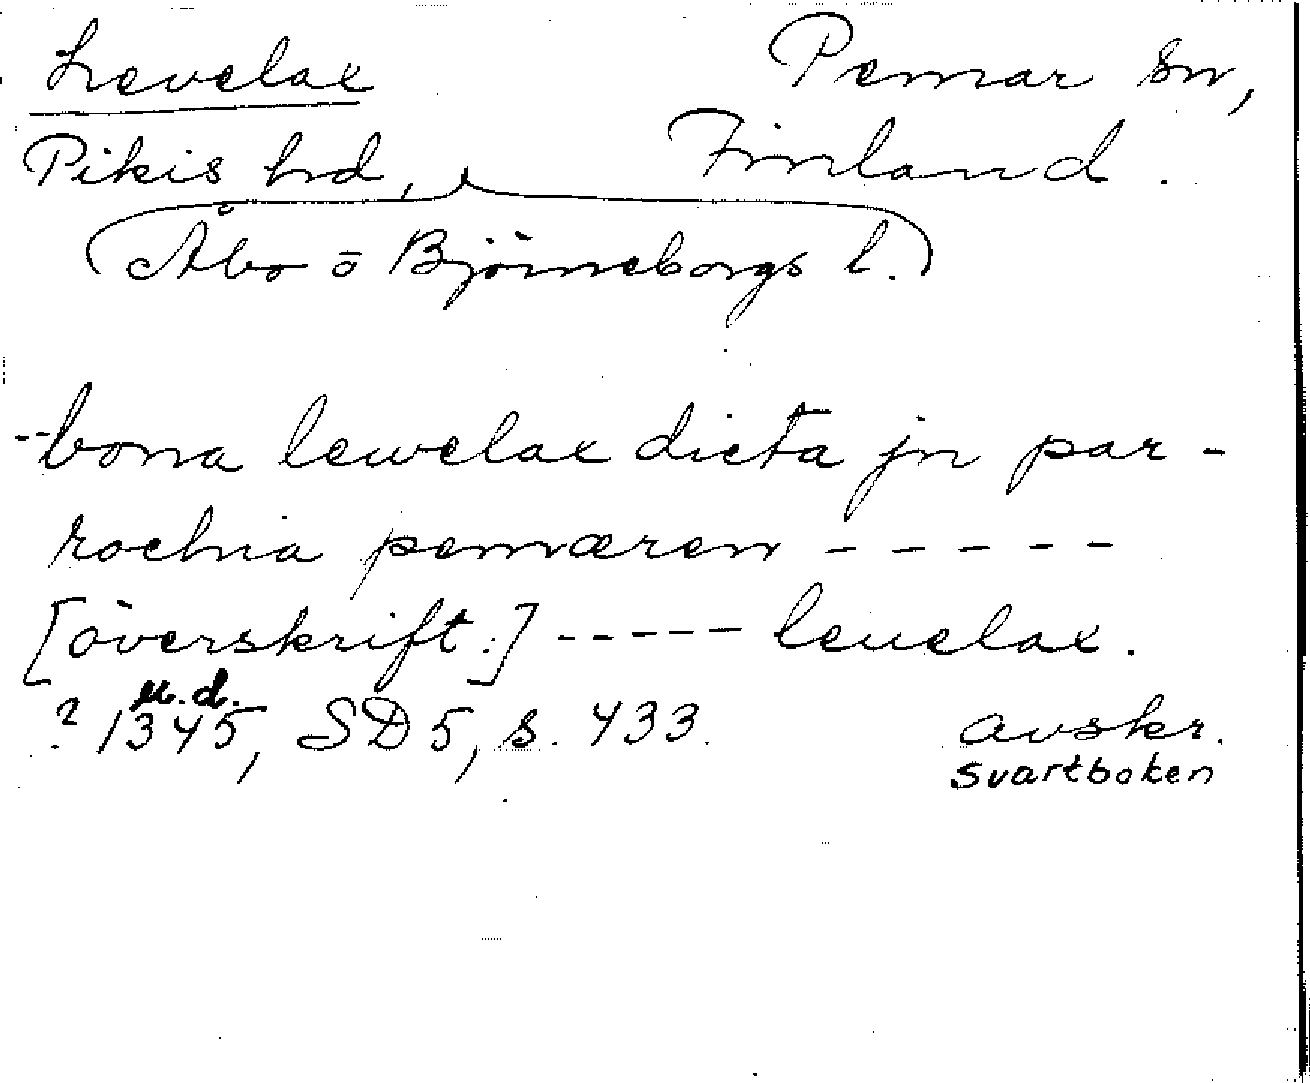 Levelax Pemar sn,
Pikis hrd, Finland.
(Åbo o Björneborgs l.)
--bona lewelax dicta jn par-
rochia pemæren -----
[överskrift:] ----- leuelax.
u.d.
? 1345, SD 5, s. 433. avskr.
svartboken